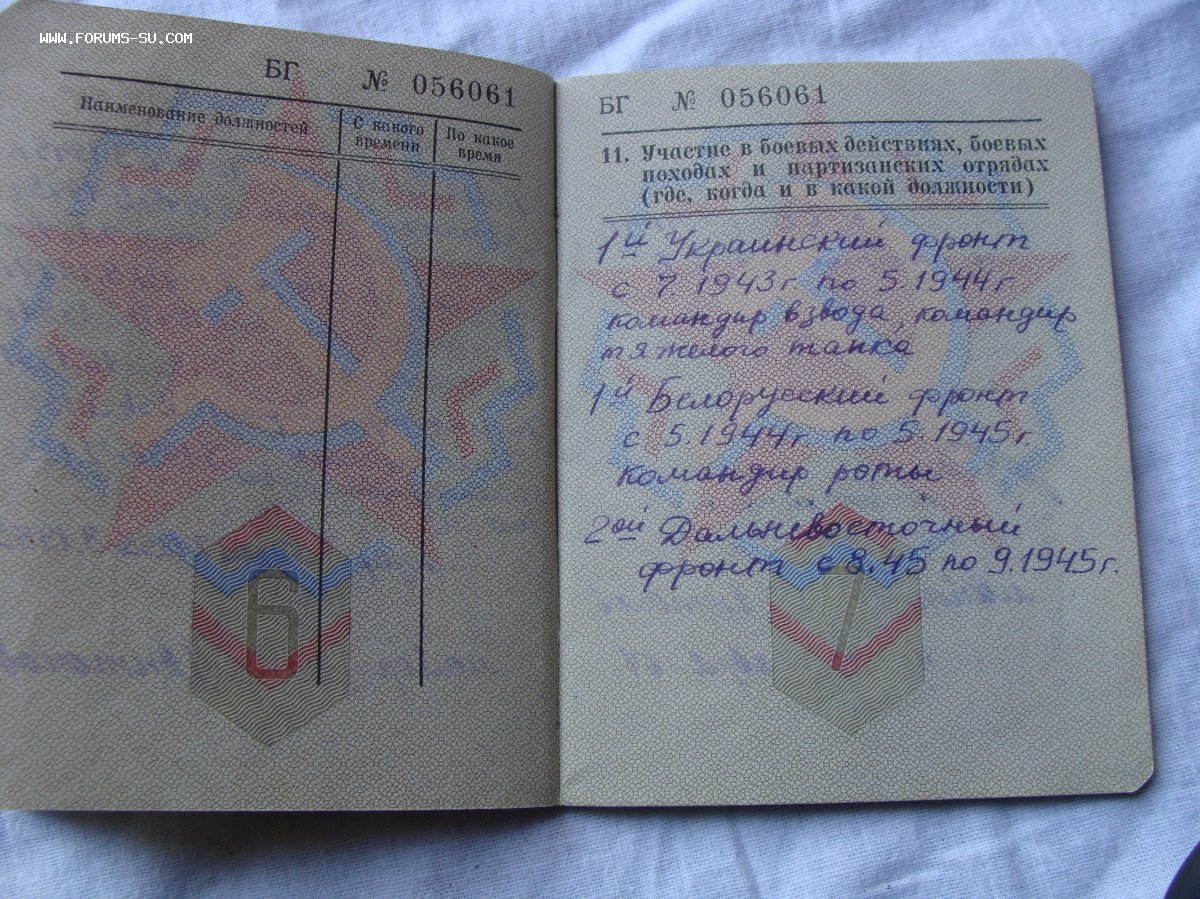 WWW.FORUMS-SU.COM
БГ № 056061
Наименование должностей
С какого времени
По какое время
6
БГ № 056061
11. Участие в боевых действиях, боевых
походах и партизанских отрядах
(где, когда и в какой должности)
1й Украинский фронт
с 7 1943г по 5.1944г
командир взвода, командир
тяжелого танка
1й Белорусский фронт
с 5.1944г по 5.1945г
командир роты
2ой Дальневосточный
фронт с 8.45 по 9.1945г.
7